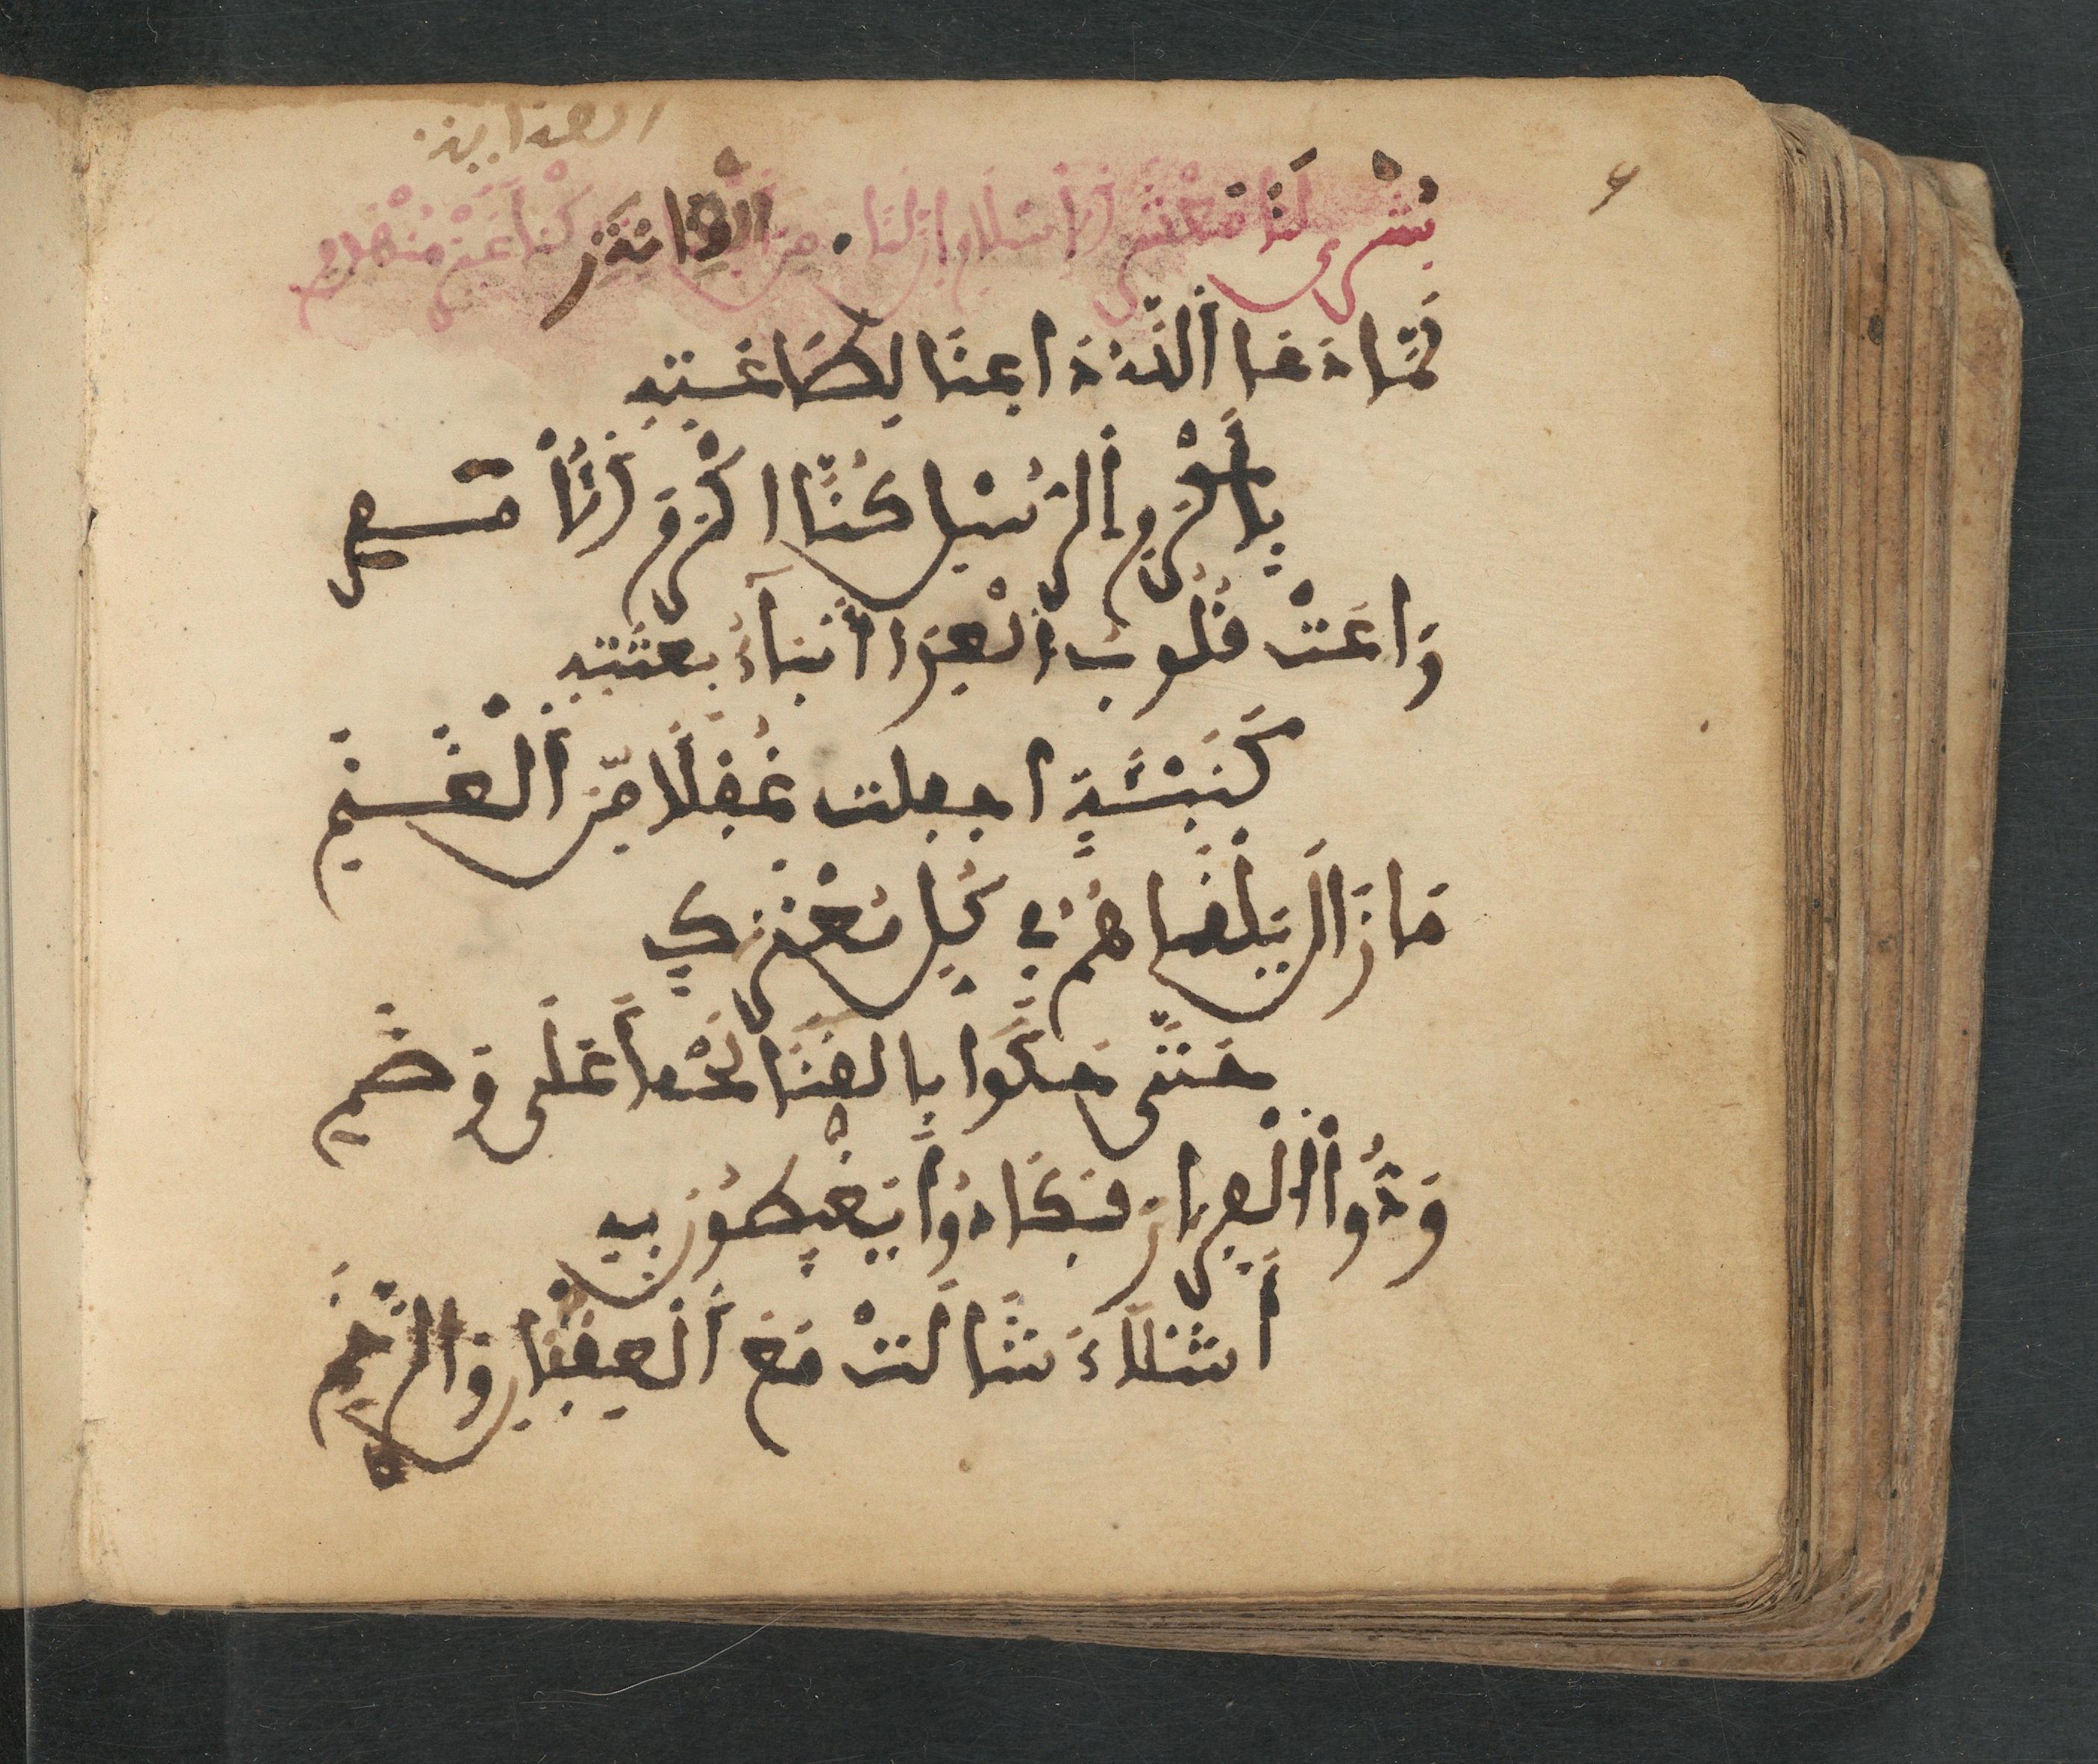 العنايه
بُشْرى لَنَا مَعْشَرَ الإِسْلَامِ إِنَّ لَنَا . مِنَ الْعِنَايَةِ رُكْنًا غَيْرَ مُنْهَدِمِ
لَمَّا دَعَا اَللَّهُ دَاعِينَا لِطَاعَتِهِ
بِأَكْرَمِ اَلرُّسْلِ كُنَّا اَكْرَمَ اَلْأُمَمِ
رَاعَتْ قُلُوبَ اَلْعِدَا أَنْبَاءُ بِعْثَتِهِ
كَنَبْأَةٍ اجفلت غُفْلًا مِّنَ اَلْغَنَمِ
مَا زَالَ يَلْقَاهُمُ فِي كُلِّ مُعْتَرَكٍ
حَتَّى حَكَوْا بِالقَنَا لَحْمًا عَلَى وَضَمِ
وَدُّوا اَلْفِرَارَ فَكَادُوا يَغْبِطُونَ بِهِ
أَشْلَاءَ شَالَتْ مَعَ اَلْعِقْبَانِ وَالرَّخَمِ